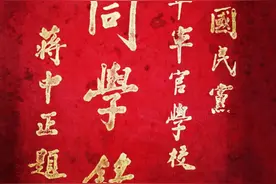 國民黨
軍官學校
同學錄
蔣中正題